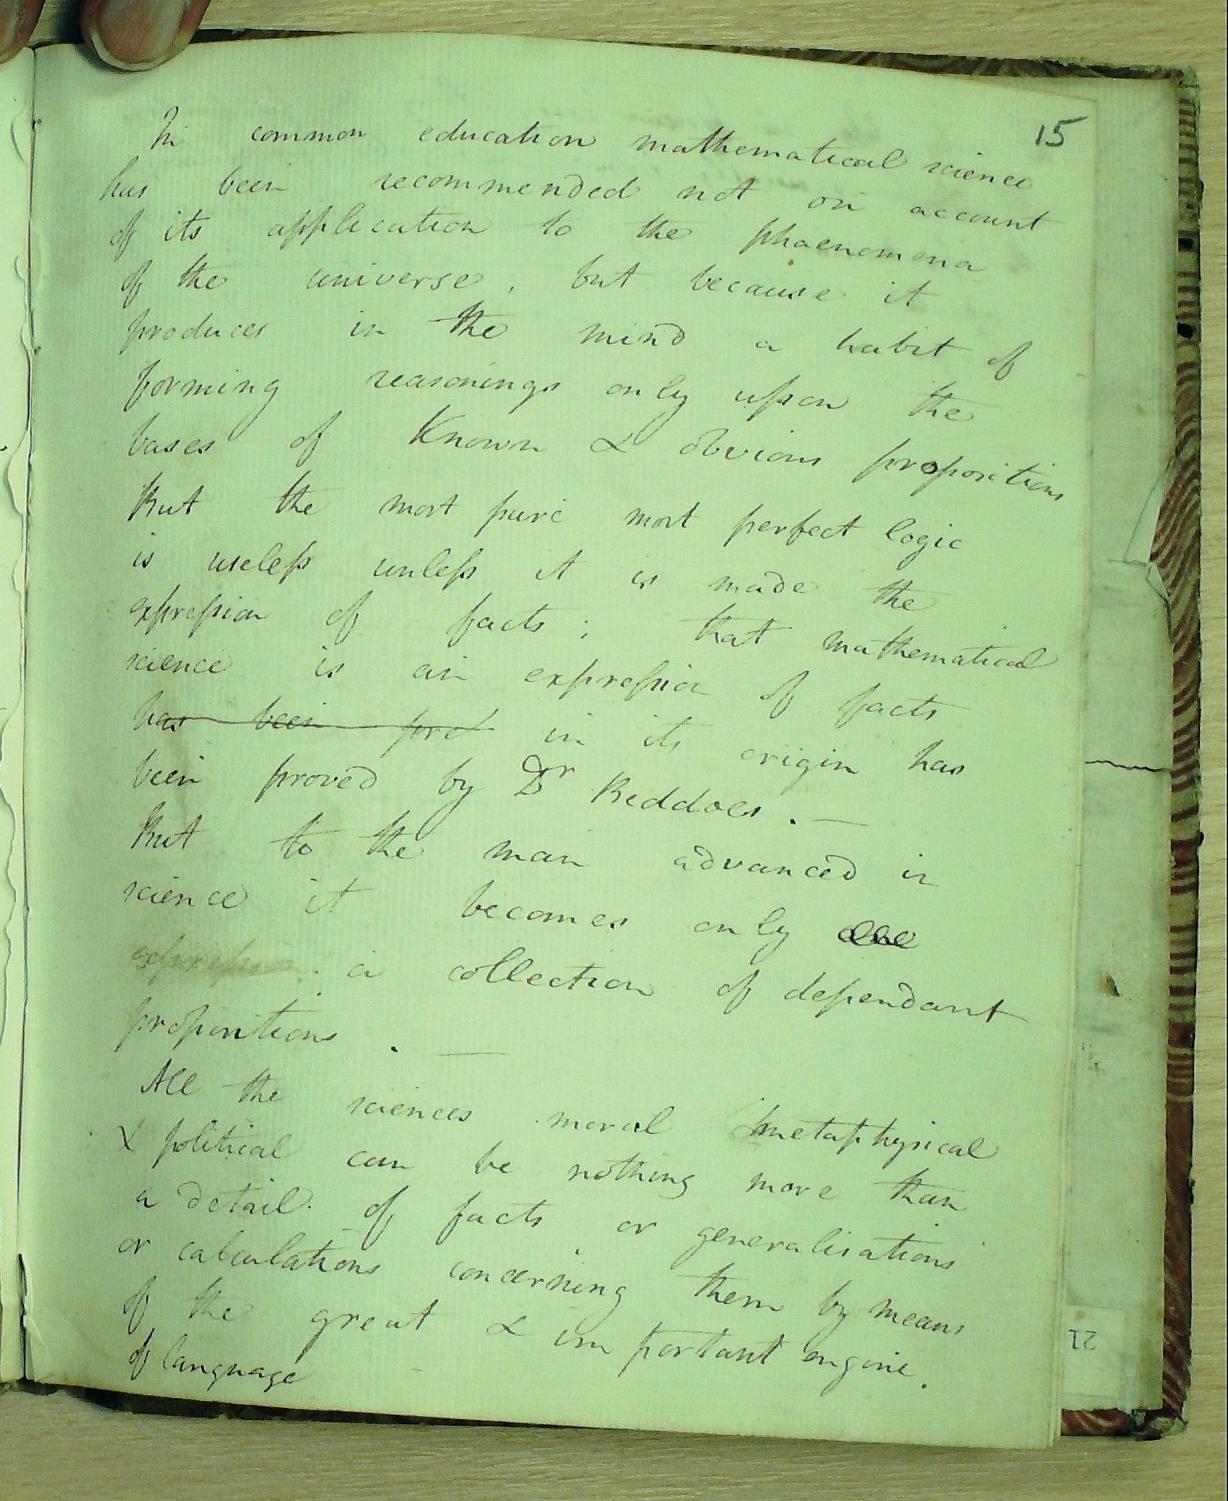 15
In common education mathematical science
has been recommended not on account
of its application to the phaenomena
of the universe, but because it
produces in the mind a habit of
forming reasonings only upon the
bases of Known & obvious propositions
But the most pure most perfect logic
is useless unless it is made the
expression of facts; that mathematical
science is an expression of facts
has been pro in its origin has
been proved by Dr Beddoes. —
But to the man advanced in
science it becomes only
expression a collection of dependant
propositions. —
All the sciences moral metaphysical
& political can be nothing more than
a detail of facts or generalisations
or calculations concerning them by means
of the great & important engine.
of language
21